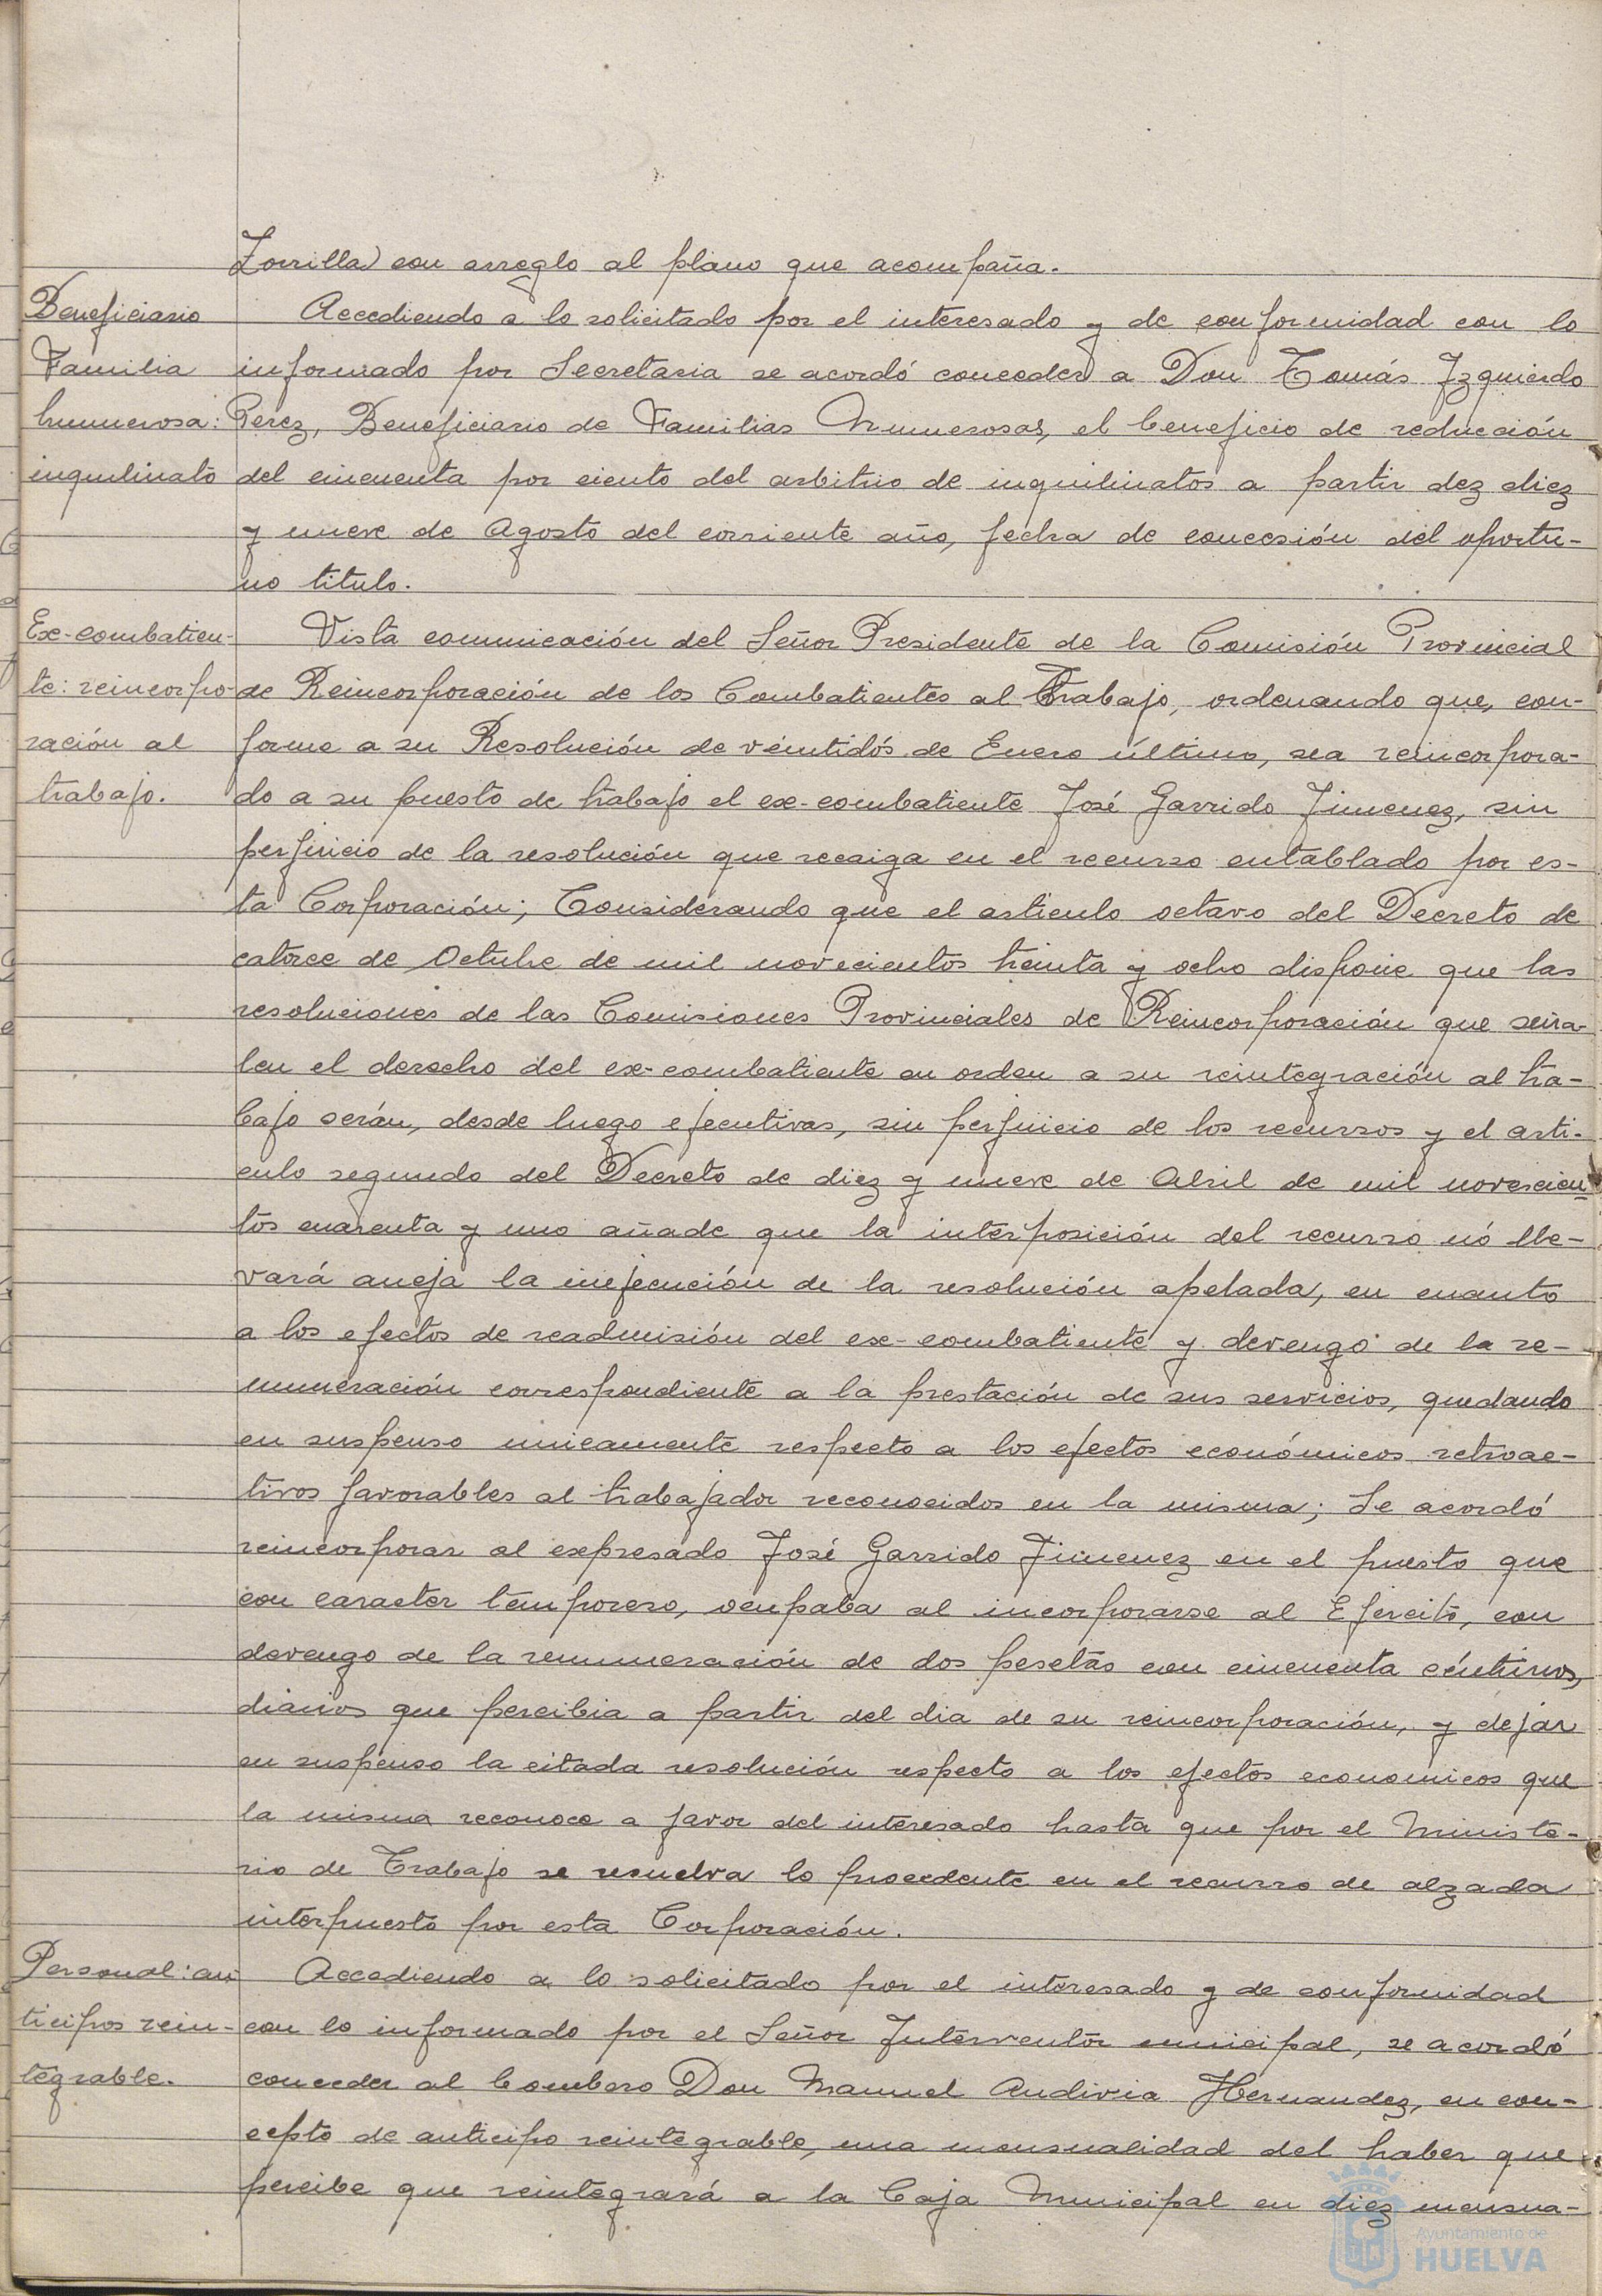 Zorrilla) con arreglo al plano que acompaña.
Beneficiario
Familia
numerosa:
inquilinato
Accediendo a lo solicitado por el interesado y de conformidad con lo
informado por Secretaria se acordó conceder a Don Tomás Izquierdo
Perez, Beneficiario de Familias Numerosas, el beneficio de reducción
del cincuenta por ciento del arbitrio de inquilinatos a partir dez diez
y nueve de Agosto del corriente año, fecha de concesión del oportu-
no titulo.
Ex-combatien-
te: reincorpo-
ración al
trabajo.
Vista comunicación del Señor Presidente de la Comisión Provincial
de Reincorporación de los Combatientes al Trabajo, ordenando que, con-
forme a su Resolución de véintidós de Enero último, sea reincorpora-
do a su puesto de trabajo el ex-combatiente José Garrido Jimenez, sin
perjuicio de la resolución que recaiga en el recurso entablado por es-
ta Corporación; Considerando que el articulo octavo del Decreto de
catorce de Octubre de mil novecientos treinta y ocho dispone que las
resoluciones de las Comisiones Provinciales de Reincorporación que seña-
len el derecho del ex-combatiente en orden a su reintegración al tra-
bajo serán, desde luego ejecutivas, sin perjuicio de los recursos y el arti-
culo segundo del Decreto de diez y nueve de Abril de mil novescien-
tos cuarenta y uno añade que la interposición del recurso nó lle-
vará aneja la inejecución de la resolución apelada, en cuanto
a los efectos de readmisión del ex-combatiente y devengo de la re-
muneración correspondiente a la prestación de sus servicios, quedando
en suspenso unicamente respecto a los efectos económicos retroac-
tivos favorables al trabajador reconocidos en la misma; Se acordó
reincorporar al expresado José Garrido Jimenez en el puesto que
con caracter temporero, ocupaba al incorporarse al Ejercito, con
devengo de la remuneración de dos pesetas con cincuenta céntimos,
diarios que percibia a partir del dia de su reincorporación, y dejar
en suspenso la citada resolución respecto a los efectos economicos que
la misma reconoce a favor del interesado hasta que por el Ministe-
rio de Trabajo se resuelva lo procedente en el recurso de alzada
interpuesto por esta Corporación.
Personal: an
ticipos rein-
tegrable.
Accediendo a lo solicitado por el interesado y de conformidad
con lo informado por el Señor Interventor municipal, se acordó
conceder al bombero Don Manuel Andivia Hernandez, en con-
cepto de anticipo reintegrable, una mensualidad del haber que
percibe que reintegrará a la Caja Municipal en diez mensua-
Ayuntamiento de
HUELVA